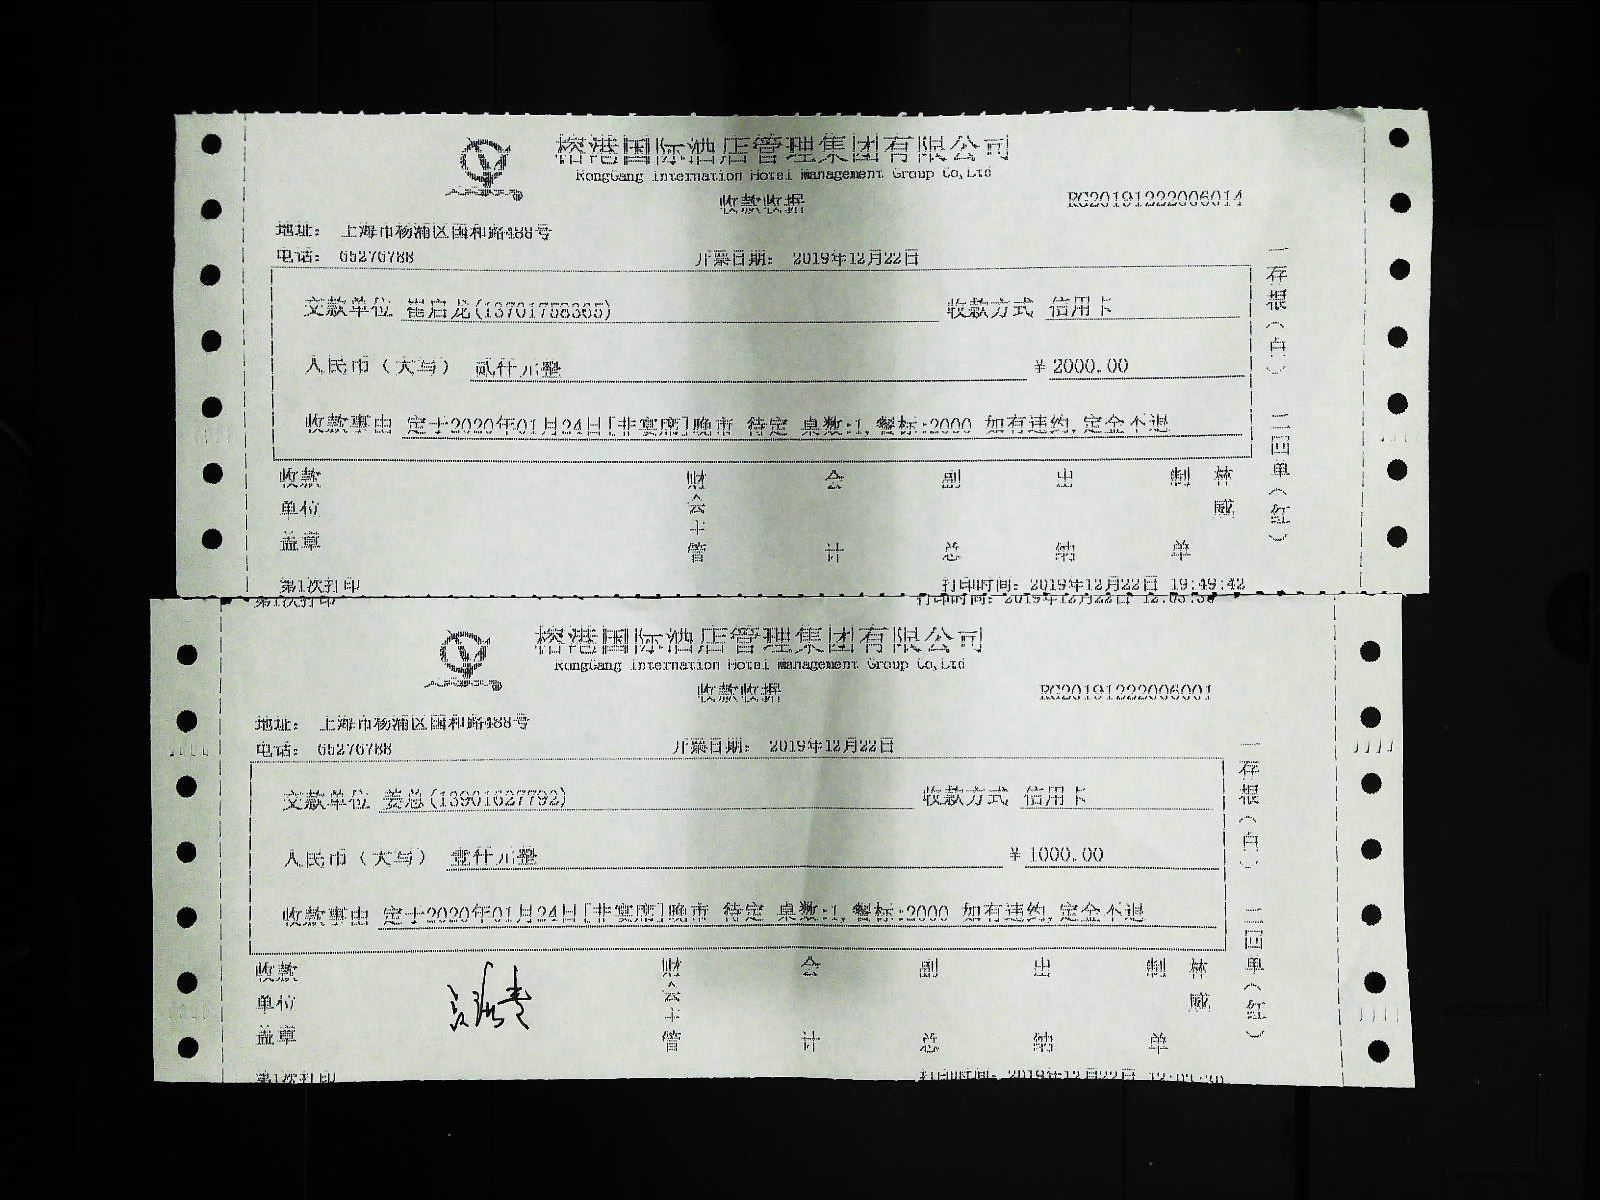 榕港国际酒店管理集团有限公司
RongGang Internation Hotel Management Group Co,Ltd
收款收据
RG20191222006014
地址： 上海市杨浦区国和路488号
电话： 65276788
开票日期： 2019年12月22日
交款单位 崔启龙(13701758365)
收款方式 信用卡
人民币（大写） 贰仟元整
¥ 2000.00
收款事由 定于2020年01月24日[非宴席]晚市 待定 桌数:1,餐标:2000 如有违约,定金不退
一存根（白） 二回单（红）
收款单位盖章
财会主管
会计
副总
出纳
制单
林威
第1次打印
打印时间：2019年12月22日 19:49:42
第1次打印
打印时间：2019年12月22日
榕港国际酒店管理集团有限公司
RongGang Internation Hotel Management Group Co,Ltd
收款收据
RG20191222006001
地址： 上海市杨浦区国和路488号
电话： 65276788
开票日期： 2019年12月22日
交款单位 姜总(13901627792)
收款方式 信用卡
人民币（大写） 壹仟元整
¥ 1000.00
收款事由 定于2020年01月24日[非宴席]晚市 待定 桌数:1,餐标:2000 如有违约,定金不退
一存根（白） 二回单（红）
收款单位盖章
财会主管
会计
副总
出纳
制单
林威
第1次打印
打印时间：2019年12月22日